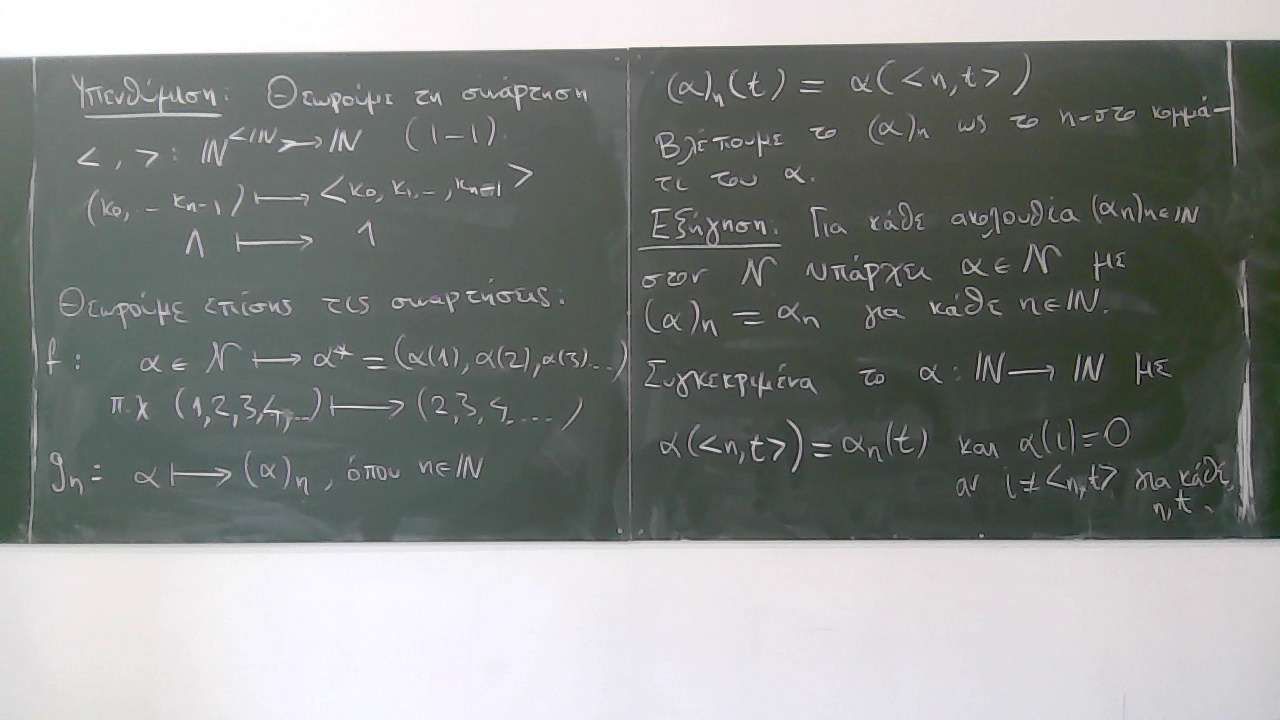 Υπενθύμιση: Θεωρούμε τη συνάρτηση
< , > : ℕ^{<ℕ} ↣ ℕ (1-1).
(κ₀, - κₙ₋₁) ⟼ <κ₀, κ₁, -, κₙ₋₁>
Λ ⟼ 1
Θεωρούμε επίσης τις συναρτήσεις:
f : α ∈ 𝒩 ⟼ α* = (α(1), α(2), α(3)...)
π.χ (1,2,3,4,...) ⟼ (2,3,4,....)
gₙ = α ⟼ (α)ₙ , όπου n∈ℕ
(α)ₙ(t) = α(<n,t>)
Βλέπουμε το (α)ₙ ως το n-στο κομμά-
τι του α.
Εξήγηση: Για κάθε ακολουθία (αₙ)n∈ℕ
στον 𝒩 υπάρχει α∈𝒩 με
(α)ₙ = αₙ για κάθε n∈ℕ.
Συγκεκριμένα το α : ℕ ⟶ ℕ με
α(<n,t>) = αₙ(t) και α(i)=0
αν i≠<n,t> για κάθε
n,t.